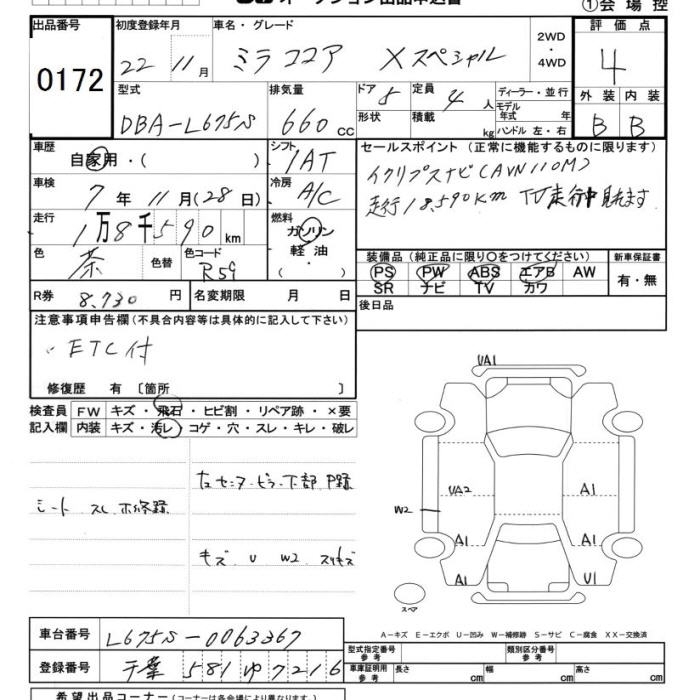 オークション出品申込書
①会場控
出品番号 0172
初度登録年月 22 11月
車名・グレード ミラココア Xスペシャル
2WD・4WD
評価点 4
型式 DBA-L675S
排気量 660cc
ドア 5
形状
定員 4人
積載 kg
ディーラー・並行
モデル年式 年
ハンドル 左・右
外装 B
内装 B
車歴 自家用・( )
シフト IAT
セールスポイント (正常に機能するものに限ります)
車検 7年11月(28日)
冷房 A/C
イクリプスナビ(AVN110M)
走行 1万8千590km
走行18,590km TV走行中見れます
燃料 ガソリン・軽油・( )
色 茶
色替
色コード R59
装備品(純正品に限り○をつけてください)
PS PW ABS エアB AW
SR ナビ TV カワ
新車保証書 有・無
R券 8,730円
名変期限 月 日
後日品
注意事項申告欄(不具合内容等は具体的に記入して下さい)
・ETC付
修復歴 有〔箇所 〕
検査員 FW キズ・飛石・ヒビ割・リペア跡・×要
記入欄 内装 キズ・汚レ・コゲ・穴・スレ・キレ・破レ
左センターピラー下部P跡
シート スレ ホ修跡
キズ U W2 スリキズ
UA1
UA2 A1
W2
A1 A1
A1 U1
スペア
A-キズ E-エクボ U-凹み W-補修跡 S-サビ C-腐食 XX-交換済
車台番号 L675S-0063367
登録番号 千葉 581 ゆ 7216
型式指定番号 参考
類別区分番号 参考
車庫証明用 参考 長さ cm 幅 cm 高さ cm
希望出品コーナー(